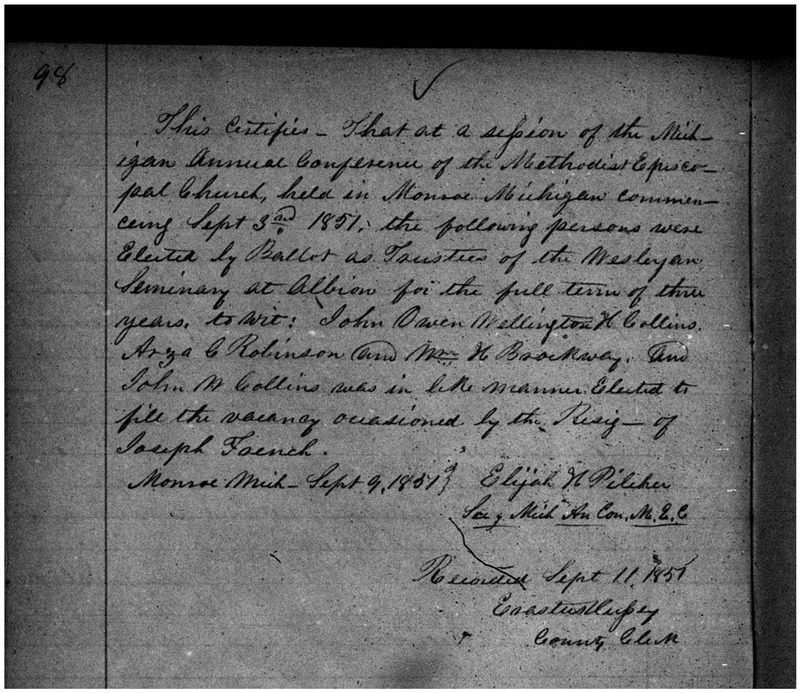 98
This Certifies – That at a session of the Mich-
igan Annual Conference of the Methodist Episco-
pal Church, held in Monroe Michigan commen-
cing Sept 3rd 1851, the following persons were
Elected by Ballot as Trustees of the Wesleyan
Seminary at Albion for the full term of three
years, to wit: John Owen Wellington H Collins.
Arza C Robinson and Wm H Brockway. and
John W Collins was in like manner Elected to
fill the vacancy occasioned by the Resig– of
Joseph French.
Monroe Mich– Sept 9, 1851} Elijah H Pilcher
Secy Mich An Con. M.E.C
Recorded Sept 11, 1851
Erastus Hussey
County Clerk